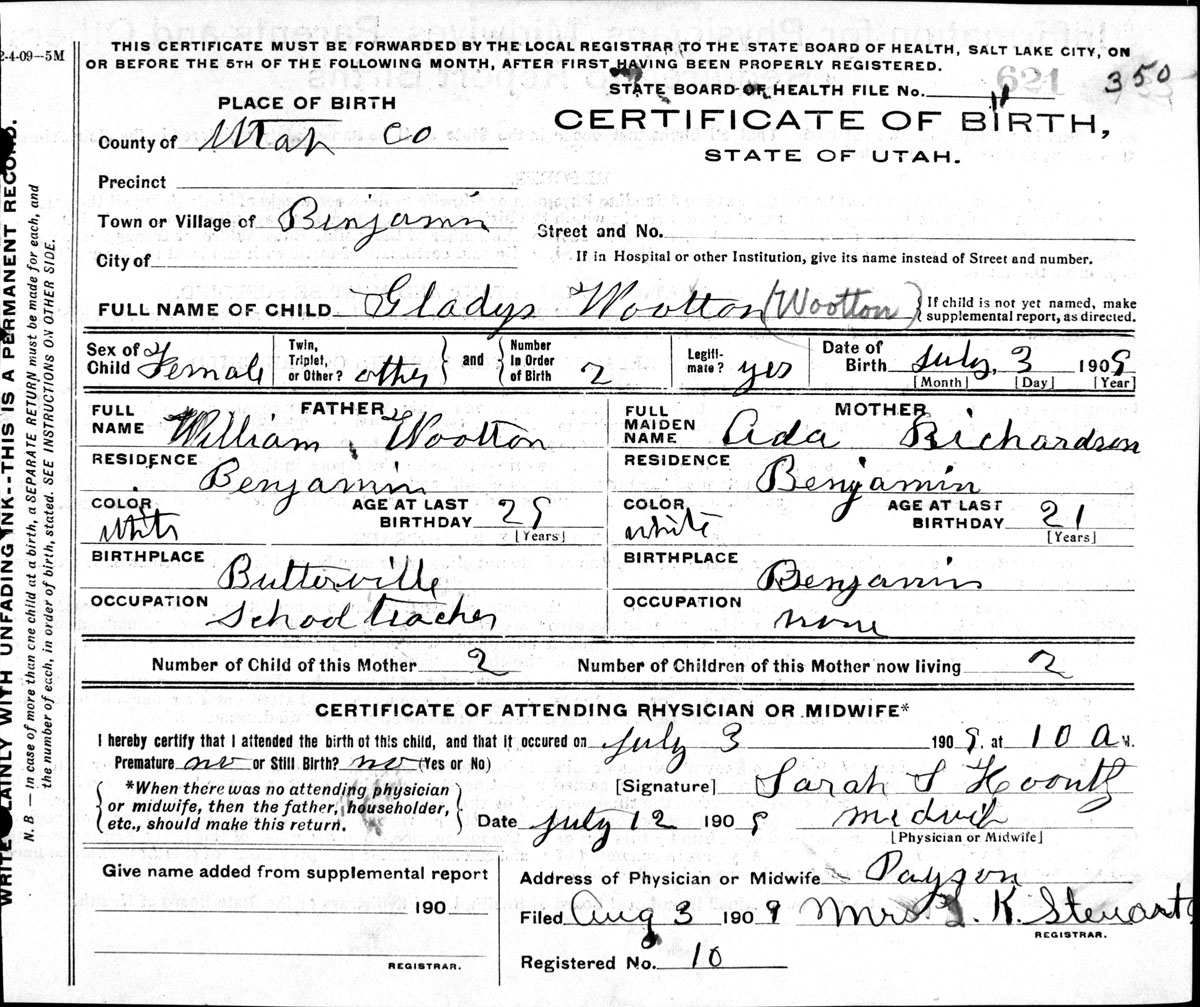 2-4-09—5M
THIS CERTIFICATE MUST BE FORWARDED BY THE LOCAL REGISTRAR TO THE STATE BOARD OF HEALTH, SALT LAKE CITY, ON
OR BEFORE THE 5TH OF THE FOLLOWING MONTH, AFTER FIRST HAVING BEEN PROPERLY REGISTERED.
621 350
STATE BOARD OF HEALTH FILE No.
PLACE OF BIRTH
CERTIFICATE OF BIRTH,
STATE OF UTAH.
County of Utah Co
Precinct
Town or Village of Benjamin
Street and No.
City of
If in Hospital or other Institution, give its name instead of Street and number.
FULL NAME OF CHILD Gladys Wootton (Wootton) } If child is not yet named, make
supplemental report, as directed.
Sex of Child Female
Twin, Triplet, or Other? other } and { Number In Order of Birth 2
Legiti-mate? yes
Date of Birth July, 3 1909
[Month] [Day] [Year]
FATHER
FULL NAME William Wootton
RESIDENCE Benjamin
COLOR White
AGE AT LAST BIRTHDAY 29
[Years]
BIRTHPLACE Butterville
OCCUPATION School teacher
MOTHER
FULL MAIDEN NAME Ada Richardson
RESIDENCE Benjamin
COLOR White
AGE AT LAST BIRTHDAY 21
[Years]
BIRTHPLACE Benjamin
OCCUPATION none
Number of Child of this Mother 2
Number of Children of this Mother now living 2
CERTIFICATE OF ATTENDING PHYSICIAN OR MIDWIFE*
I hereby certify that I attended the birth of this child, and that it occured on July 3 1909, at 10 A M.
Premature no or Still Birth? no (Yes or No)
*When there was no attending physician
or midwife, then the father, householder,
etc., should make this return.
[Signature] Sarah S Koontz
Date July 12 1909 Midwife
[Physician or Midwife]
Give name added from supplemental report
190
REGISTRAR.
Address of Physician or Midwife Payson
Filed Aug 3 1909 Mrs. L. K. Steuart
REGISTRAR.
Registered No. 10
WRITE PLAINLY WITH UNFADING INK--THIS IS A PERMANENT RECORD.
N. B — In case of more than one child at a birth, a SEPARATE RETURN must be made for each, and
the number of each, in order of birth, stated. SEE INSTRUCTIONS ON OTHER SIDE.